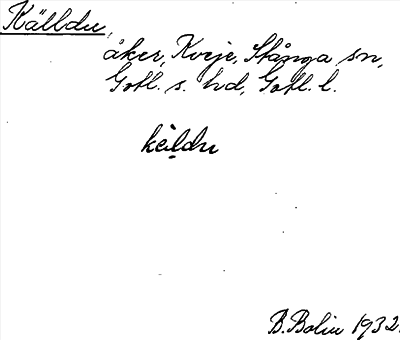 Källdu,
åker, Kvie, Stånga sn,
Gotl. s. hd, Gotl. l.
kèi̯ldu
B. Bolin 1932.